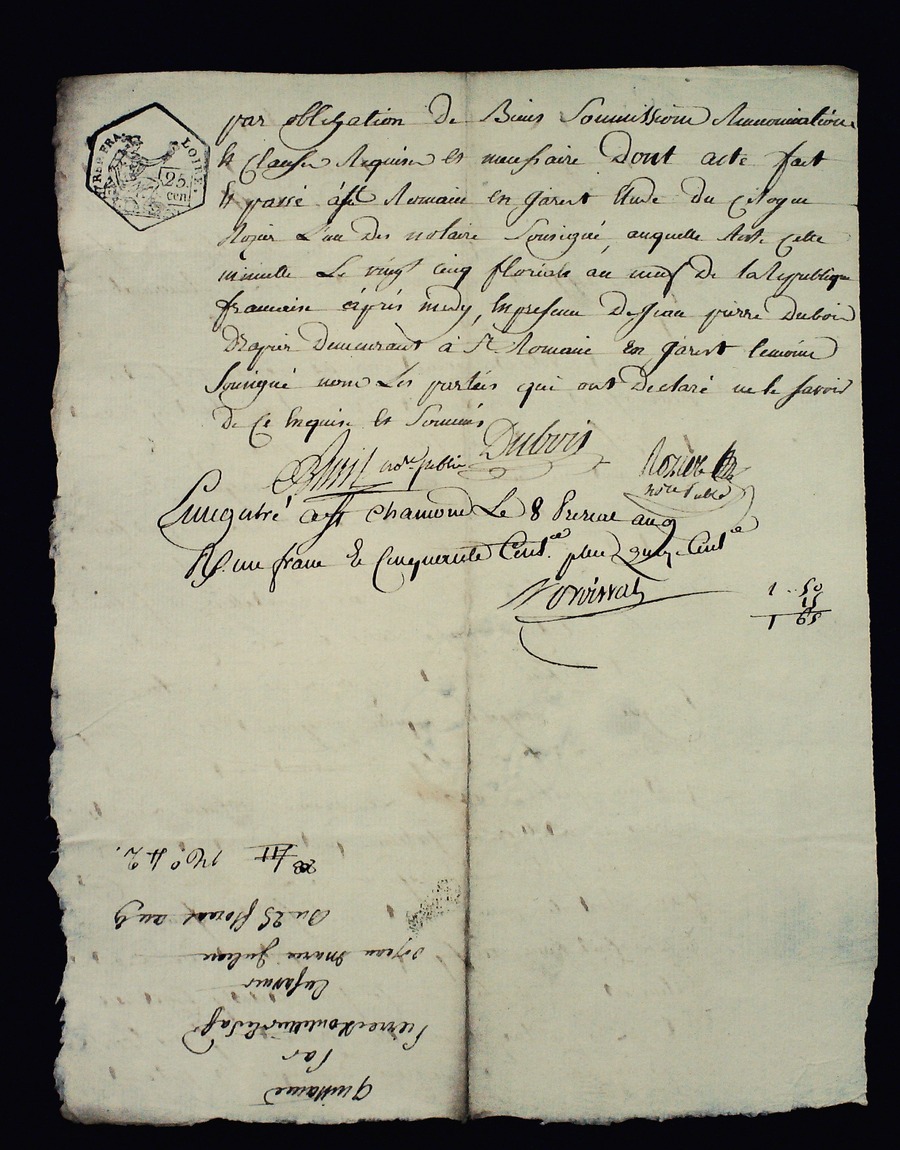 RÉP. FRA.
LOIRE.
25.
cen
par obligation de Biens Soumission Renonciation
& Clause Requise et necessaire Dont acte fait
& passé à St Romain en Jarest Etude du Citoyen
Rozier L'un des notaire Sousigné, auquelle Reste Cette
minutte Le vingt cinq floréale an neuf De la Republique
francaise après midy, En presence De Jean pierre Dubois
Drapier Demeurant à St Romain En Jarest temoins
Sousigné non Les parties qui ont Declaré ne le Savoir
de Ce Enquise et Sommés
not.re public Dubois Rozier
not.re Public
Enregistré a St chamond Le 8 Prerial an 9
R. un franc & Cinquante Cent.es plus Cent.es
1 .. 50
15
1 65
Quittance
Par
Pierre
à Jean Marie Julien
Du 25 floreal an 9
N.º 42.